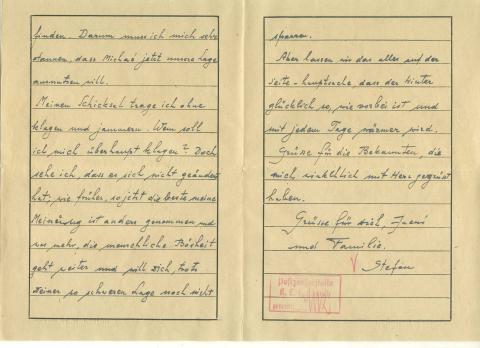 finden. Darum muss ich mich sehr
staunen, dass Michaś jetzt unsere Lage
ausnutzen will.
Meinem Schicksal trage ich ohne
klagen und jammern. Wem soll
ich mich überhaupt klagen? Doch
sehe ich, dass es sich nicht geändert
hat, wie früher, so jetzt die beste meine
Meinung ist anders genommen und
was mehr, die menschliche Bösheit
geht weiter und will dich, trotz
deiner so schweren Lage noch nicht
sparen.
Aber lassen wir das alles auf der
Seite - hauptsache dass der Winter
glücklich so, wie vorbei ist und
mit jedem Tage wärmer wird.
Grüsse für die Bekannten, die
mich wirklich mit Herz gegrüsst
haben.
Grüsse für dich, Jasni
und Familie.
Stefan
Postzensurstelle